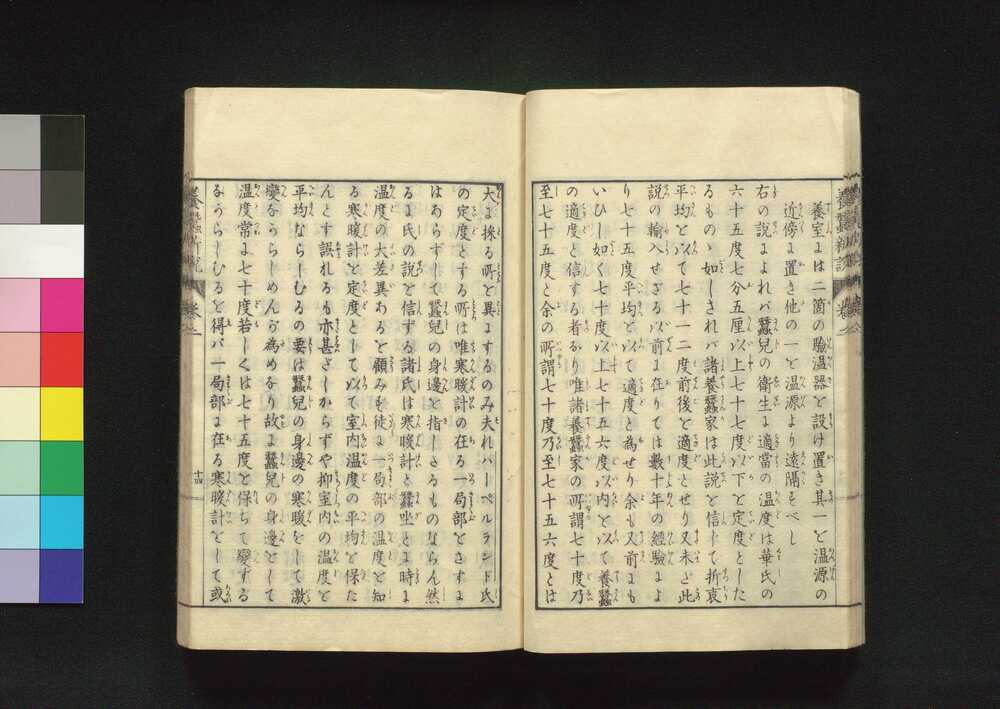 養室には二箇の驗温器を設け置き其一を温源の
近傍に置き他の一を温源より遠隔すべし
右の説によれバ蠶兒の衛生に適當の温度は華氏の
六十五度七分五厘以上七十七度以下を定度とした
るものゝ如しされバ諸養蠶家は此説を信じて折衷
平均を以て七十一二度前後を適度とせり又未だ此
説の輸入せざる以前に在りては數十年の經驗によ
り七十五度平均を以て適度と為せり余も又前にも
いひし如く七十度以上七十五六度以内を以て養蠶
の適度と信ずる者なり唯諸養蠶家の所謂七十度乃
至七十五度と余の所謂七十度乃至七十五六度とは
大に採る所を異にするのみ夫れハーペルランド氏
の定度とする所は唯寒暖計の在る一局部をさすに
はあらずして蠶兒の身邊を指しゝものならん然
るに氏の説を信ずる諸氏は寒暖計と蠶坐とに時に
温度の大差異あるを顧みず徒に一局部の温度を知
る寒暖計を定度として以て室内温度の平均を保た
んとす誤れるも亦甚だしからずや抑室内の温度を
平均ならしむるの要は蠶兒の身邊の寒暖をして激
變なからしめんが為めなり故に蠶兒の身邊をして
温度常に七十度若しくは七十五度を保ちて變ずる
なからしむるを得バ一局部に在る寒暖計をして或
養蠶新説 卷之
十四